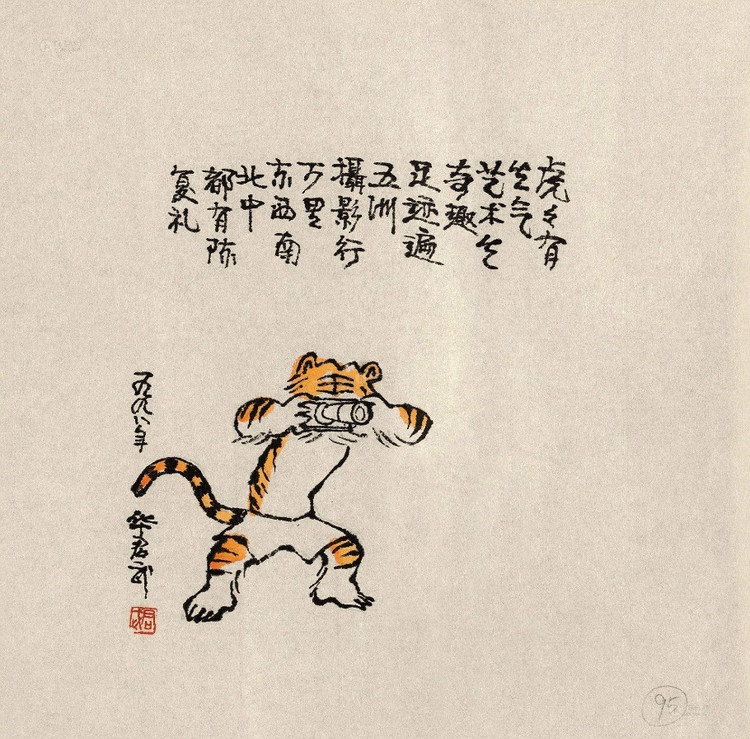 虎々有
生气
艺术生
奇趣
足迹遍
五洲
攝影行
万里
东西南
北中
都有陈
复礼
一九九八年
华君武
95